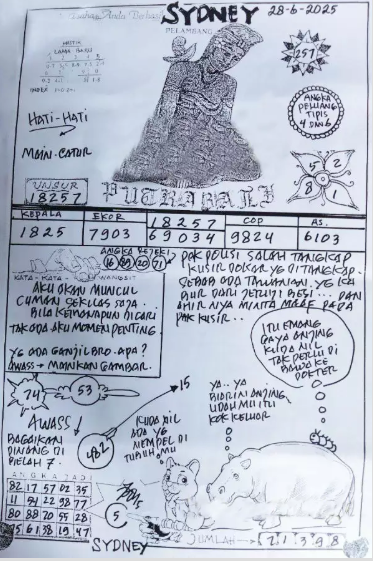 SYDNEY 28-6-2025
PELAMBANG
257
ANGKA
PELUANG
TIPIS
4 DAN 6
HATI-HATI
MAIN-CATUR
5 2
8
UNSUR
18257
PUTRA BALI
KEPALA EKOR 18257 COP AS.
1825 7903 69034 9824 6103
ANGKA REJEKI
KATA - KATA WANGSIT
AKU AKAN MUNCUL
CUMAN SEKILAS SAJA...
BILA KEMANAPUN DICARI
TAK ADA AKU MOMEN PENTING.
YG ADA GANJIL BRO. APA?
AWASS → MAINKAN GAMBAR.
PAK POLISI SALAH TANGKAP
KUSIR DOKAR YG DITANGKAP.
SEBAB ADA TAWANAN. YG KA
BUR DARI JERUJI BESI... DAN
AHIRNYA MINTA MAAF PADA
PAK KUSIR...
ITU EMANG
GAYA ANJING
KUDA NIL
TAK PERLU DI
BAWA KE
DOKTER
74 53
15
AWASS
BAGAIKAN
PINANG DI
BELAH 7.
482
KUDA NIL
ADA YG
NEMPEL DI
TUBUH MU
YA.. YA
BIARIN ANJING
UDAH MU ITU
KOK KELUOR
ANGKA JADI
82 17 57 02 35
11 54 22 98 77
80 88 70 55 28
75 61 38 19 47
5
SYDNEY
JUMLAH → 2 1 3 9 8